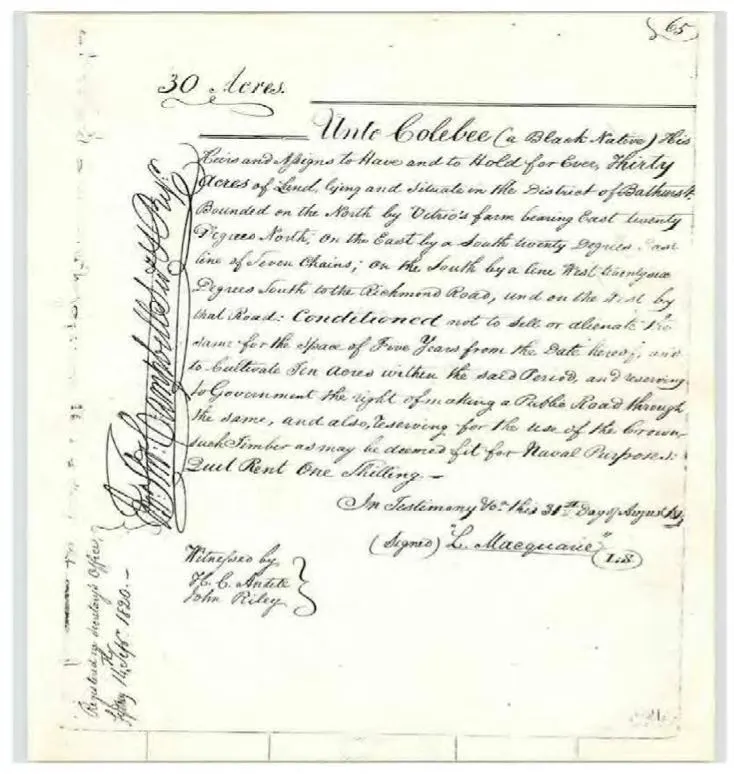 65
30 Acres.
Unto Colebee (a Black Native) His
Heirs and Assigns to Have and to Hold for Ever, Thirty
Acres of Land, lying and situate in the District of Bathurst,
Bounded on the North by Vitrio's farm bearing East twenty
Degrees North, on the East by a South twenty Degrees East
line of Seven Chains; on the South by a line West twenty
Degrees South to the Richmond Road, and on the West by
that Road: Conditioned not to Sell or alienate the
same for the Space of Five Years from the Date hereof, and
to Cultivate Ten Acres within the said Period, and reserving
to Government the right of making a Public Road through
the same, and also, reserving for the use of the Crown,
such Timber as may be deemed fit for Naval Purposes:
Quit Rent One Shilling. –
In Testimony &c. this 31st Day of August
(Signed) "L. Macquarie"
L.S
Witnessed by
H. C. Antill
John Riley
Registered in Secretary's Office,
Sydney 14th Septr. 1820. –
Campbell Secy.